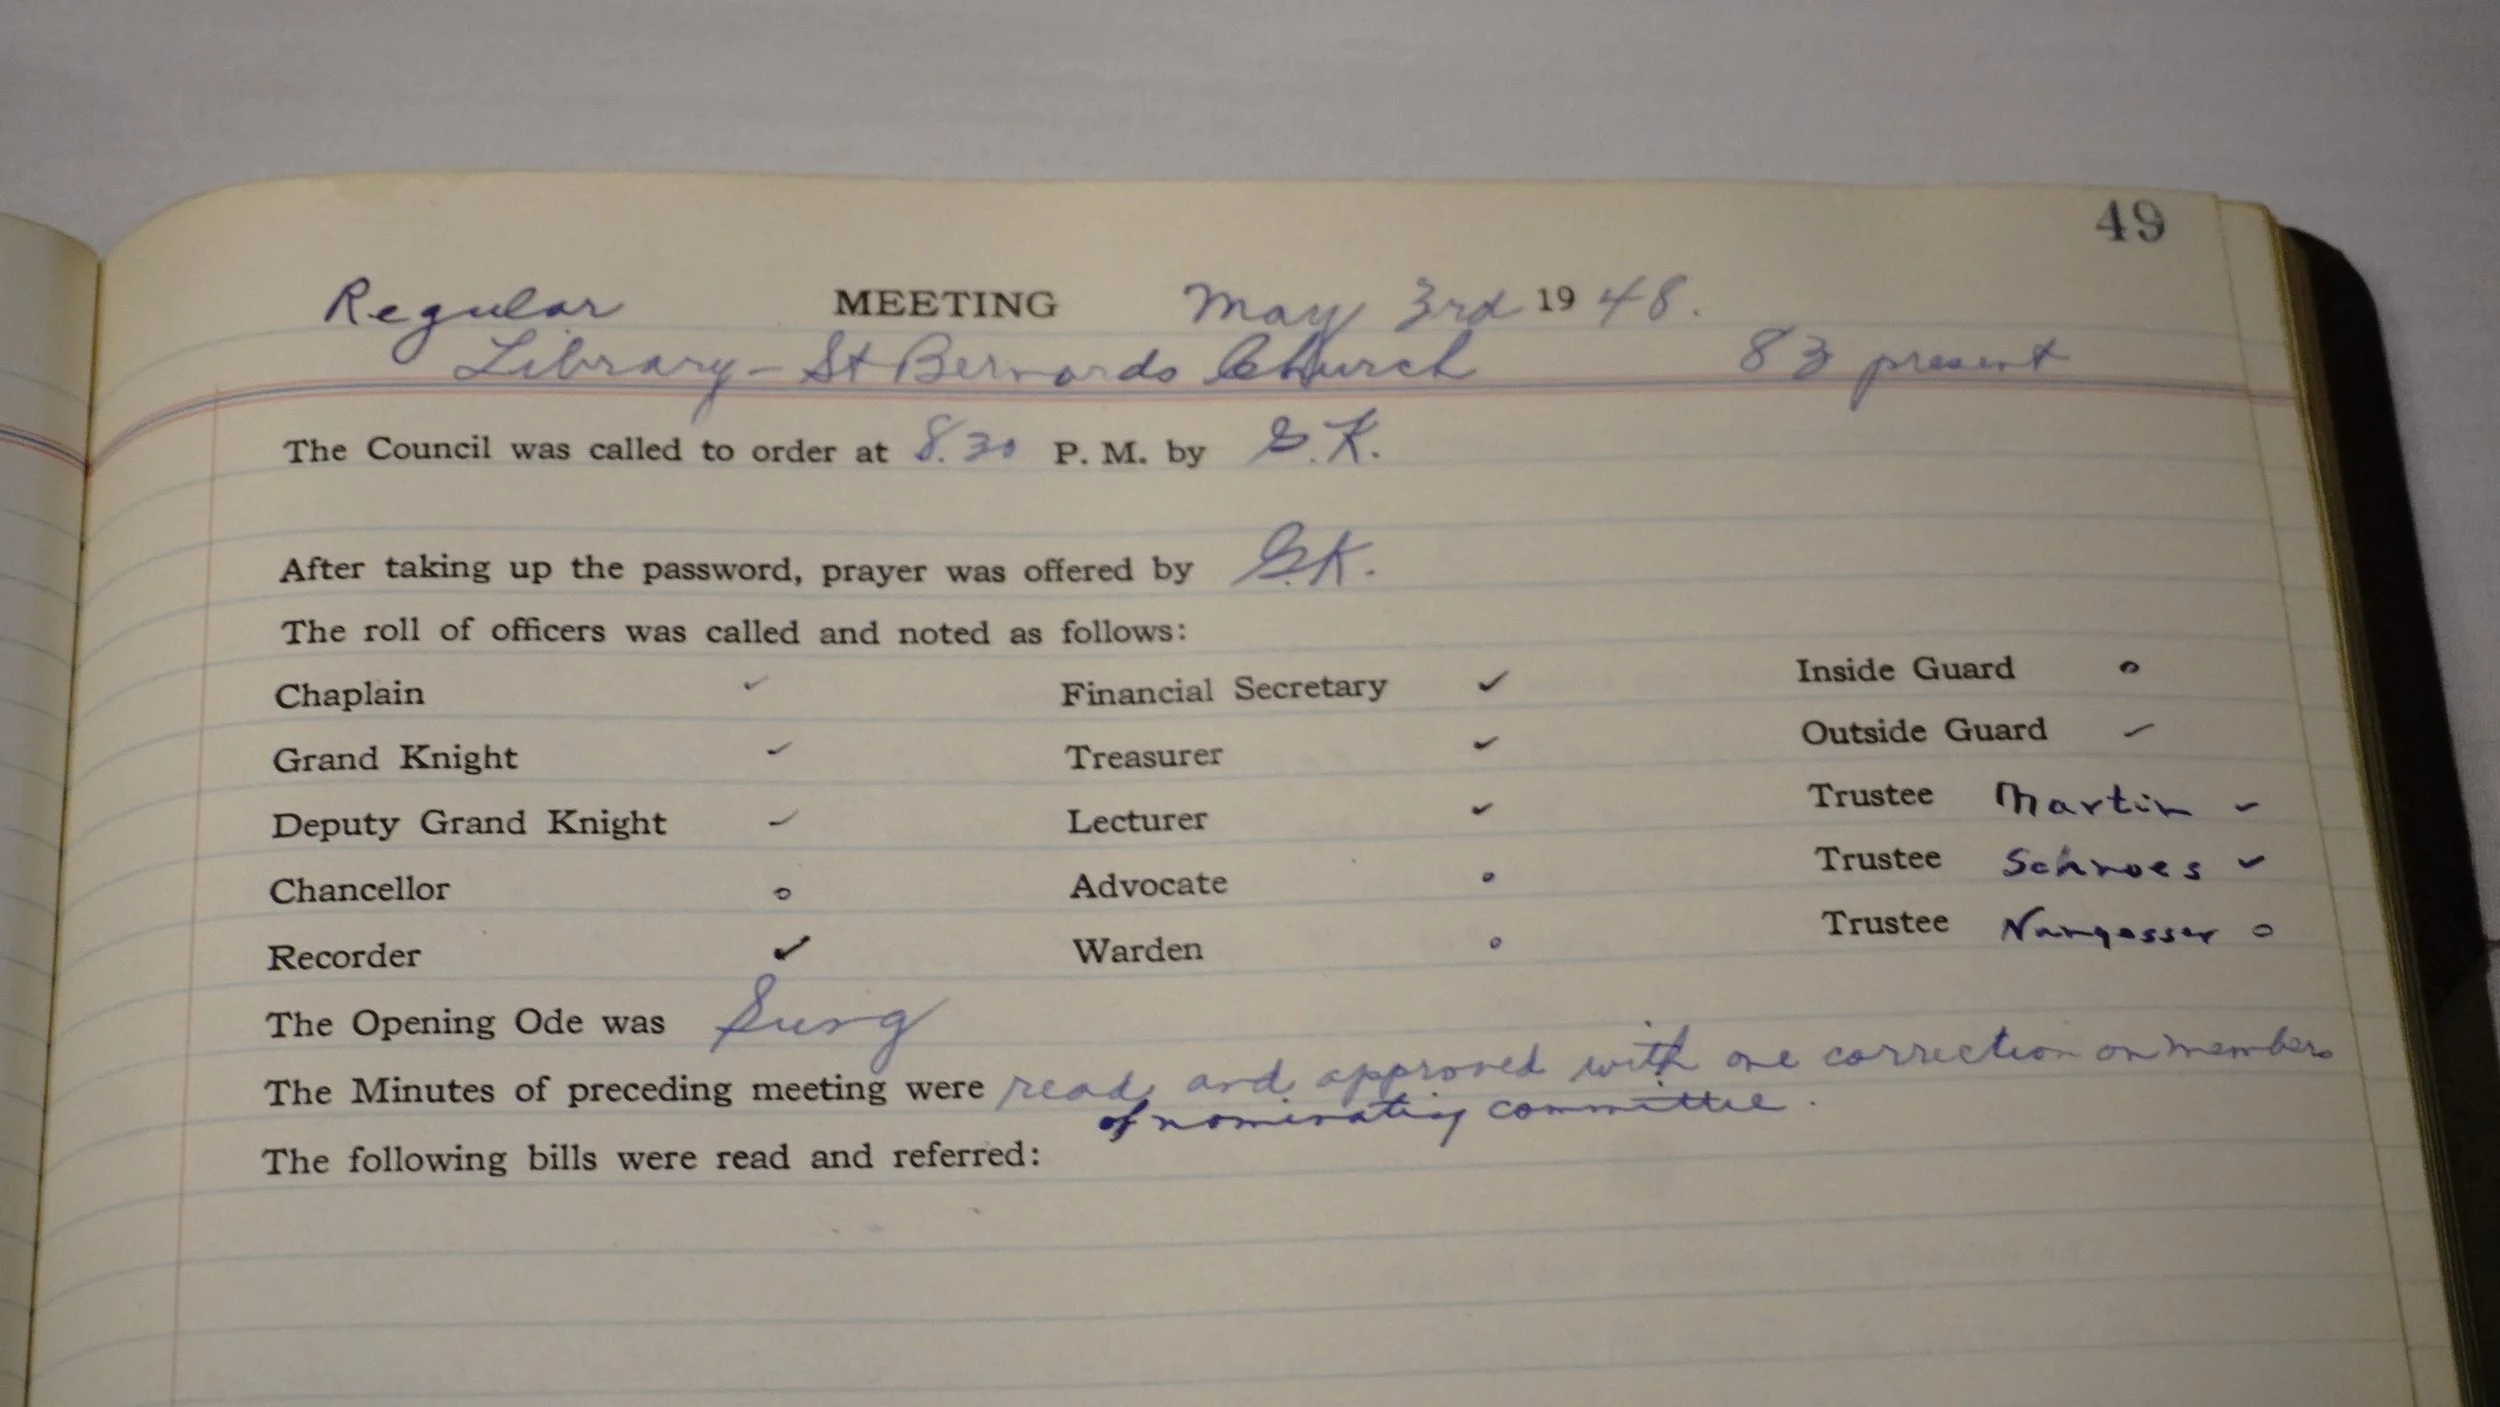 49
Regular MEETING May 3rd 1948.
Library - St Bernards Church 83 present
The Council was called to order at 8.30 P. M. by G.K.
After taking up the password, prayer was offered by G.K.
The roll of officers was called and noted as follows:
Chaplain ✓ Financial Secretary ✓ Inside Guard o
Grand Knight ✓ Treasurer ✓ Outside Guard ✓
Deputy Grand Knight ✓ Lecturer ✓ Trustee Martin ✓
Chancellor o Advocate o Trustee Schroes ✓
Recorder ✓ Warden o Trustee o
The Opening Ode was Sung
The Minutes of preceding meeting were read and approved with one correction on members
of nominating committee.
The following bills were read and referred: